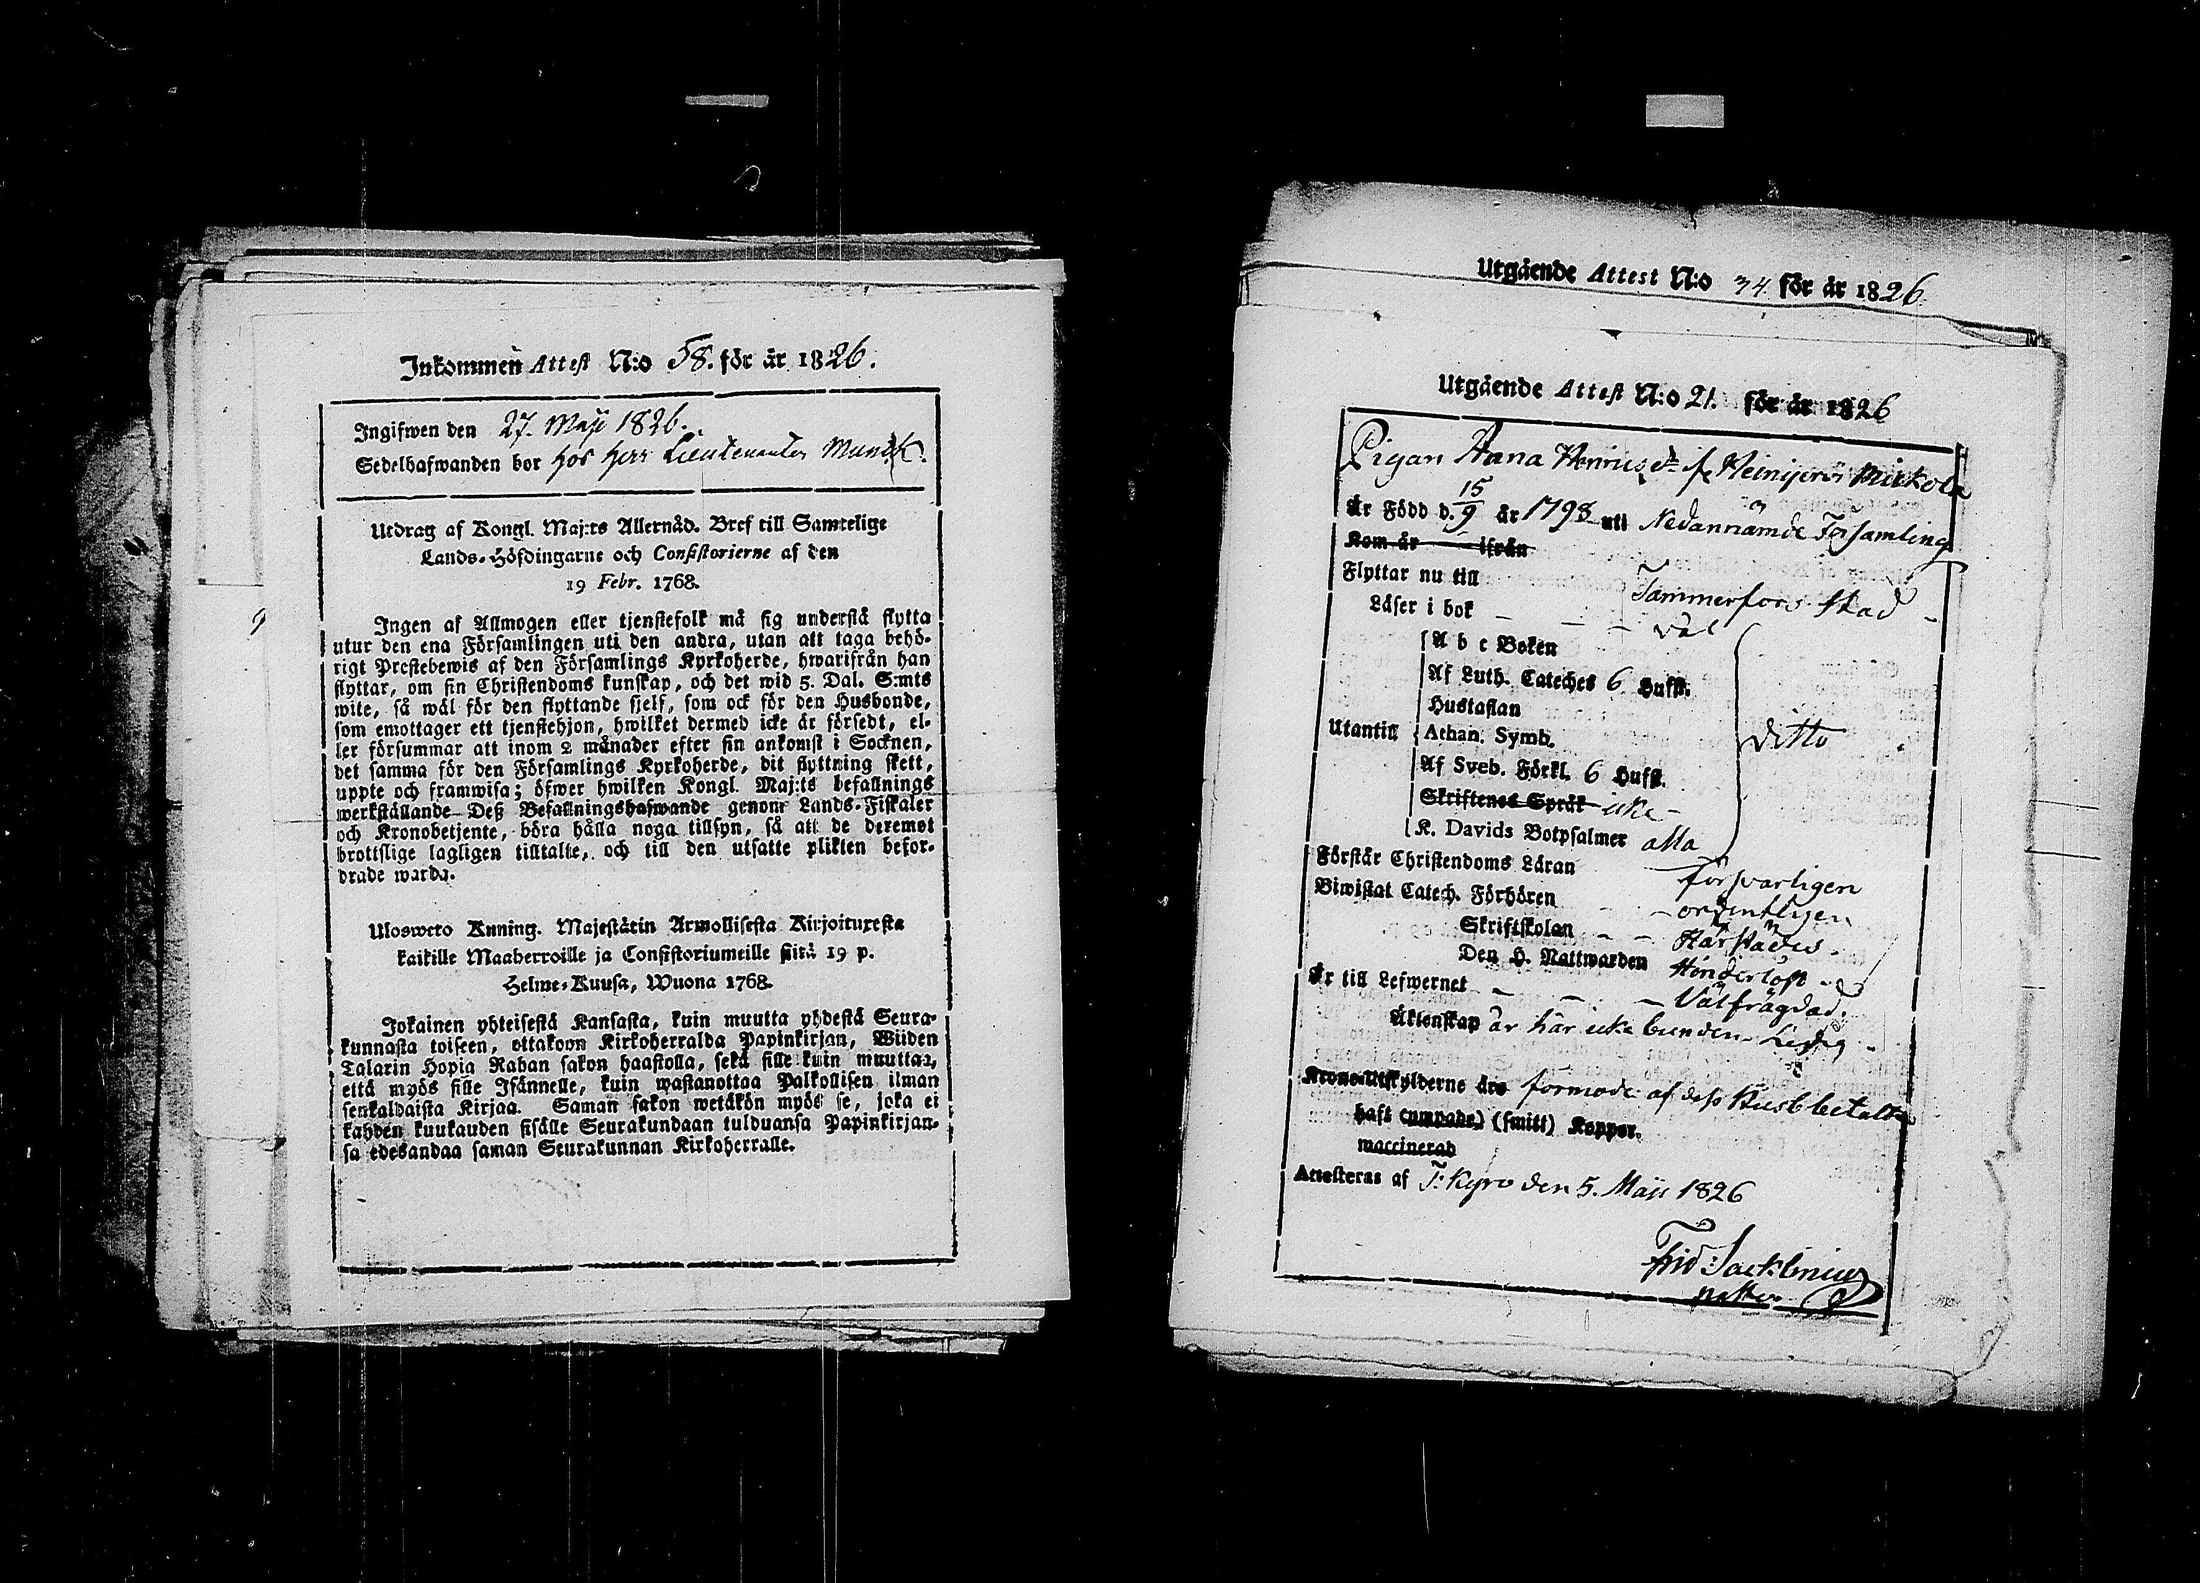 Inkommen Attest N:o 58. för år 1826.
Ingifwen den 27. Maji 1826.
Sedelhafwanden bor hos Herr Lieutenanten Munck.
Utdrag af Kongl. Maj:ts Allernåd. Bref till Samtelige
Lands-Höfdingarne och Consistorierne af den
19 Febr. 1768.
Ingen af Allmogen eller tjenstefolk må sig understå flytta
utur den ena Församlingen uti den andra, utan att taga behö-
rigt Prestebewis af den Församlings Kyrkoherde, hwarifrån han
flyttar, om sin Christendoms kunskap, och det wid 5. Dal. S:mts
wite, så wäl för den flyttande sjelf, som ock för den Husbonde,
som emottager ett tjenstehjon, hwilket dermed icke är försedt, el-
ler försummar att inom 2 månader efter sin ankomst i Socknen,
det samma för den Församlings Kyrkoherde, dit flyttning skett,
uppte och framwisa; öfwer hwilken Kongl. Maj:ts befallnings
werkställande Deß Befallningshafwande genom Lands-Fiskaler
och Kronobetjente, böra hålla noga tillsyn, så att de deremot
brottslige lagligen tilltalte, och till den utsatte plikten befor-
drade warda.
Ulosweto Kuning. Majestätin Armollisesta Kirjoituxesta
kaikille Maaherroille ja Consistoriumeille siitä 19 p.
Helme-Kuusa, Wuona 1768.
Jokainen yhteisestä Kansasta, kuin muutta yhdestä Seura-
kunnasta toiseen, ottakoon Kirkoherralda Papinkirjan, Wiiden
Talarin Hopia Rahan sakon haastolla, sekä sille kuin muuttaa,
että myös sille Isännelle, kuin wastanottaa Palkollisen ilman
senkaldaista Kirjaa. Saman sakon wetäkön myös se, joka ei
kahden kuukauden sisälle Seurakundaan tulduansa Papinkirjan-
sa edesandaa saman Seurakunnan Kirkoherralle.
Utgående Attest N:o 34 för år 1826.
Utgående Attest N:o 21. för år 1826
Pigan Anna Henriksdr if Heinijerfvi Mickola
Är Född d. 15/9 år 1798 uti Nedannämde Församling
Kom år ifrån
Flyttar nu till Tammerfors stad
Läser i bok väl
A b c Boken
Af Luth. Cateches 6 Hufst.
Hustaflan
Utantill Athan. Symb. ditto
Af Sveb. Förkl. 6 Hufst.
Skriftenes Språk icke
K. Davids Botpsalmer alla
Förstår Christendoms Läran försvarligen
Biwistat Catech. Förhören ordentligen
Skriftskolan
Den H. Nattwarden
Är till Lefwernet Välfrägdad.
Äktenskap är här icke bunden Ledig
Krono-Utskylderne äro förmod: af dess Husb betalte
haft (ympade) (smitt) Koppor.
vaccinerad
Attesteras af T: Kyro den 5. Maji 1826